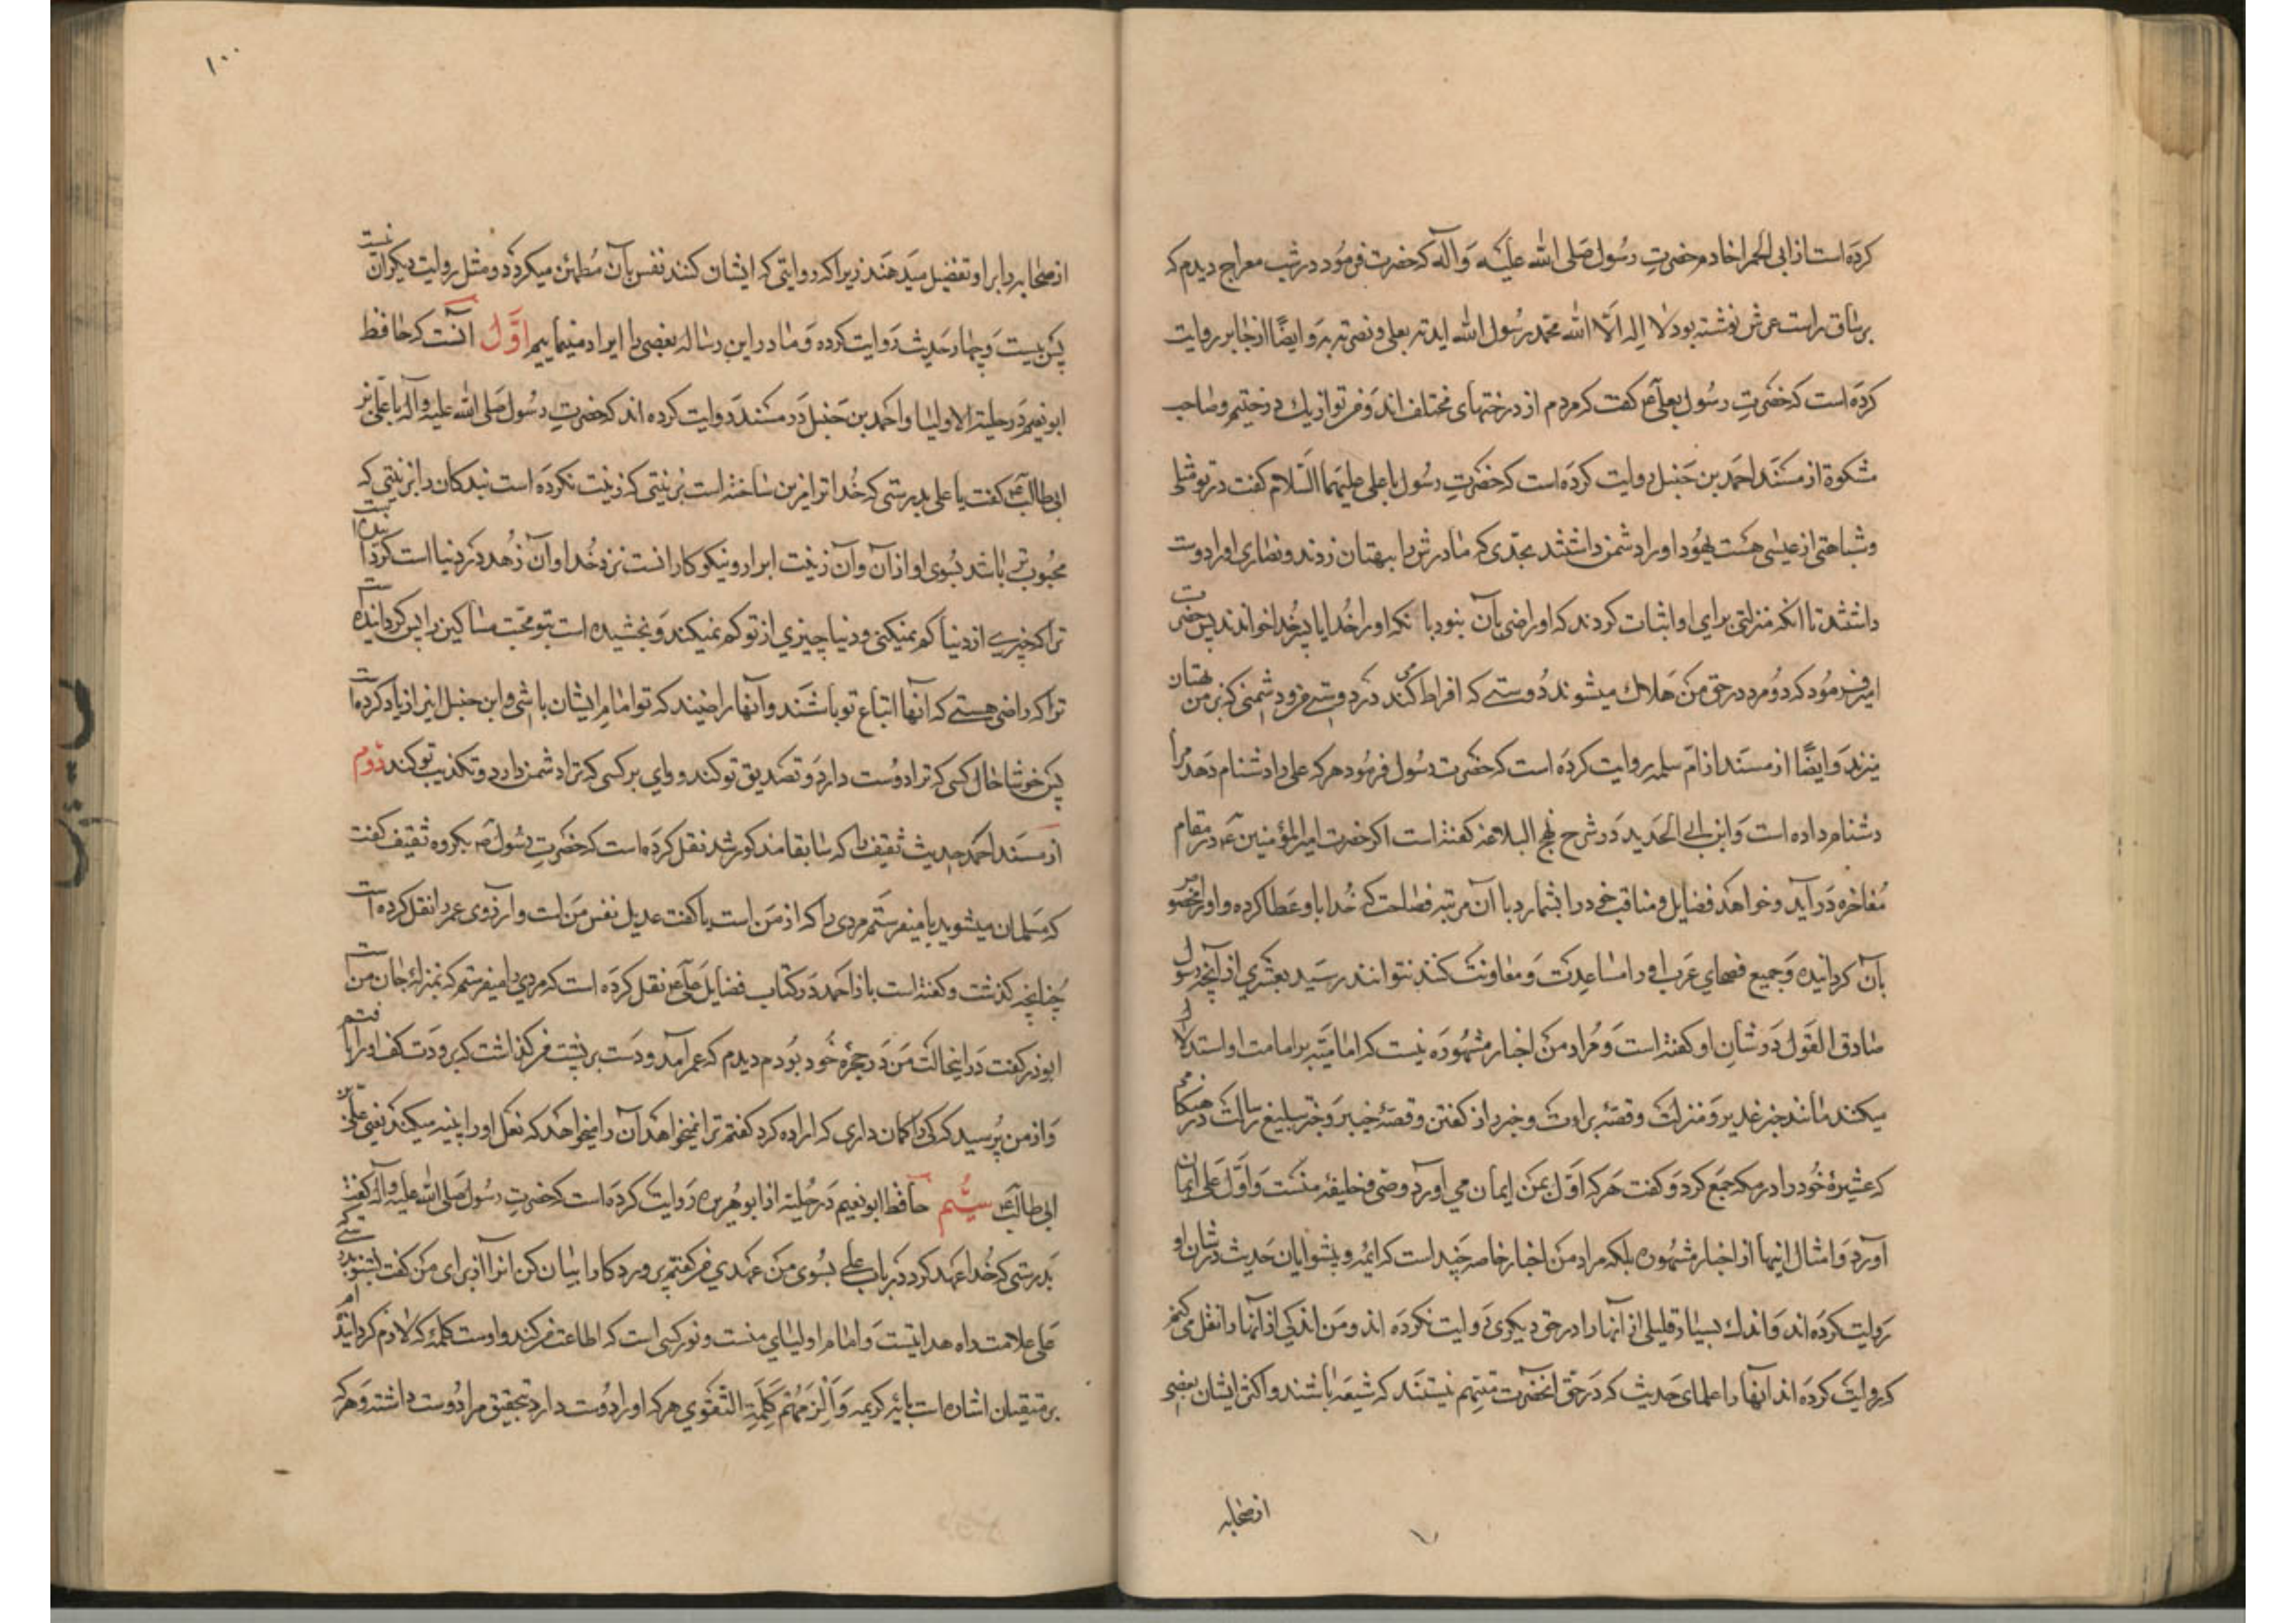 کرده است از ابی الحمرا خادم حضرتِ رسُول صَلی الله علیه وَ آله که حضرت فرمُود در شب معراج دیدم که
بر ساق راست عرش نوشته بود لا اِله اِلّا الله محمد رسُول الله ایدته بعلی و نصرته به وَ ایضًا از جابر روایت
کرده است که حضرَتِ رسُول بعلی ع کفت که مردم از درختهای مختلف اند وَ من و تو از یك درختیم و صاحب
مشکوة از مسنَد احمَد بن حَنبل روایت کرده است که حضرَتِ رسُول با علی علیهما السّلام کفت در تو مثلی
و شباهتی از عیسی هست یهُود او را دشمن داشتند بحدّی که مادرش را ببهتان زدند و نصاری او را دوست
داشتند تا انکه منزلتی برای او اثبات کردند که او راضی بآن نبود با انکه او را خُدا یا پسر خُدا خواندند پس حضرت
امیر فرمُود که دُو مرد در حق من هَلاك میشوند دُوستے که افراط کند در دوستے من و دشمنی که بر من بهتان
میزند وَ ایضًا از مسنَد از امّ سلمه روایت کرده است که حضرَت رسُول فرمُود هرکه علی را دشنام دهد مرا
دشنام داده است وَ ابن ابی الحَدید دَر شرح نهج البلاغه کفته است اکر حضرت امیر المؤمنین ع در مقام
مُفاخره دَر آید و خواهَد فضایل و مناقب خود را بشمارد با آن مرتبه فصاحت که خُدا باو عَطا کرده و او را مخصو
بآن کردانیده وَ جمیع فصحای عَرب او را مساعدت وَ معاونَت کنند نتوانند رسَید بعشری از آنچه رسول
صادق القَول دَر شأنِ او کفته است وَ مُراد من اخبار مشهُوره نیست که امامیّه بر امامت او استدلال
میکنند مانند خبر غدیر وَ منزلت و قصّهٔ براءت و خبر راز کفتن و قصّهٔ خیبر وَ خبر تبلیغ رسالت در هنکامی
که عشیرهٔ خُود را در مکه جَمع کرد وَ کفت هَر که اوّل بمن ایمان می آورد وصی و خلیفهٔ منست وَ اوّل عَلی ایمان
آورد وَ امثال اینها از اخبار مشهُوره بلکه مراد من اخبار خاصه چَند است که ائمه و پیشوایان حَدیث در شان او
رَوایت کرده اند وَ اندك بسیار قلیلی از آنها را در حق دیکری رَوایت نکرده اند و من اندکی از آنها را نقل می کنم
که روایَت کرده اند آنها را علمای حَدیث که دَر حق آنحضرَت متّهم نیستند که شیعَه باشند و اکثر ایشان بعضی
از صحابه
۱۰۰
از صحابه را بر او تفضیل میَدهَند زیرا که روایتی که ایشان کنند نفس بآن مُطمئن میکردَد و مثل روایت دیکران نیست
پس بیست وَ چهار حَدیث رَوایت کرده وَ ما در این رساله بعضی را ایراد مینماییم اوّلْ آنست که حافظ
ابو نعیم دَر حلیة الاولیا و احمَد بن حَنبل دَر مسنَد رَوایت کرده اند که حضرَتِ رسُول صَلی الله علیه و آله با عَلی بن
ابی طالب ع کفت یا علی بدرستی که خُدا ترا مزین ساخته است بزینتی که زینت نکرده است بندکان را بزینتی که
محبُوب تر باشد بسُوی او از آن و آن زینَت ابرار و نیکو کارانست نزد خُدا و آن زُهد در دنیا است کردانیده است
ترا که چیزے از دنیا کم نمیکنی و دنیا چیزی از تو کم نمیکند وَ بخشیده است بتو محبّت مساکین را پس کردانیده است
ترا که راضی هستے که آنها اتباع تو باشند و آنها راضیند که تو امام ایشان باشی و ابن حنبل اینرا زیاد کرده است
پس خوشا حال کسی که ترا دوُست دارد وَ تصدیق تو کند و وای بر کسی که ترا دشمن دارد و تکذیب تو کند دوم
از مسنَد احمَد حدیث ثقیف را که سابقا مذکور شد نقل کرده است که حضرَتِ رسُول ص بکروه ثقیف کفت
که مسلمان میشوید یا میفرستم مردی را که از من است یا کفت عدیل نفس من است و آرزوی عمر را نقل کرده است
چُنانچه کذشت و کفته است باز احمَد دَر کتاب فضایل علی ع نقل کرده است که مردی را میفرستم که بمنزلهٔ جان من است
ابوذر کفت دَر اینحالت مَن دَر حجرهٔ خُود بُودم دیدم که عمر آمد و دست بر پشت من کذاشت که برودت کف او را یافتم
وَ از من پُرسید که کی را کمان داری که اراده کرد کفتم ترا نمیخواهد آن را میخواهَد که نعل او را پینه میکند یعنی علی بن
ابی طالب ع سیُّم حافظ ابو نعیم دَر حُلیه از ابو هُریره رَوایت کرده است که حضرَتِ رسُول صَلی الله علیه و آله کفت
بَدرستی که خُدا عَهد کرد در باب علی بسُوی من عَهدی من کفتم پرورد کارا بیان کن انرا از برای من کفت بشنو بدرستی که
علی علامت راه هدایتست وَ امام اولیای منست و نور کسی است که اطاعت من کند و اوست کلمهٔ که لازم کردانیده ام
بر متقیان اشاره است بآیهٔ کریمه وَ اَلْزَمَهُم کَلِمَةَ التّقوی هرکه او را دُوست دارد بتحقیق مرا دُوست داشته وَ هرکه